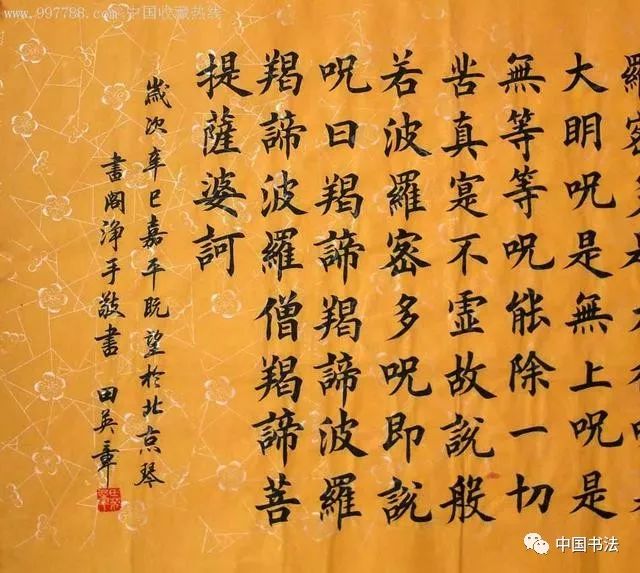 www.997788.com 中国收藏热线
羅密
大明呪是無上呪是
無等等呪能除一切
苦真寔不虛故說般
若波羅密多呪即說
呪曰羯諦羯諦波羅
羯諦波羅僧羯諦菩
提薩婆訶
歲次辛巳嘉平既望於北京琴
書閣淨手敬書 田英章
中国书法